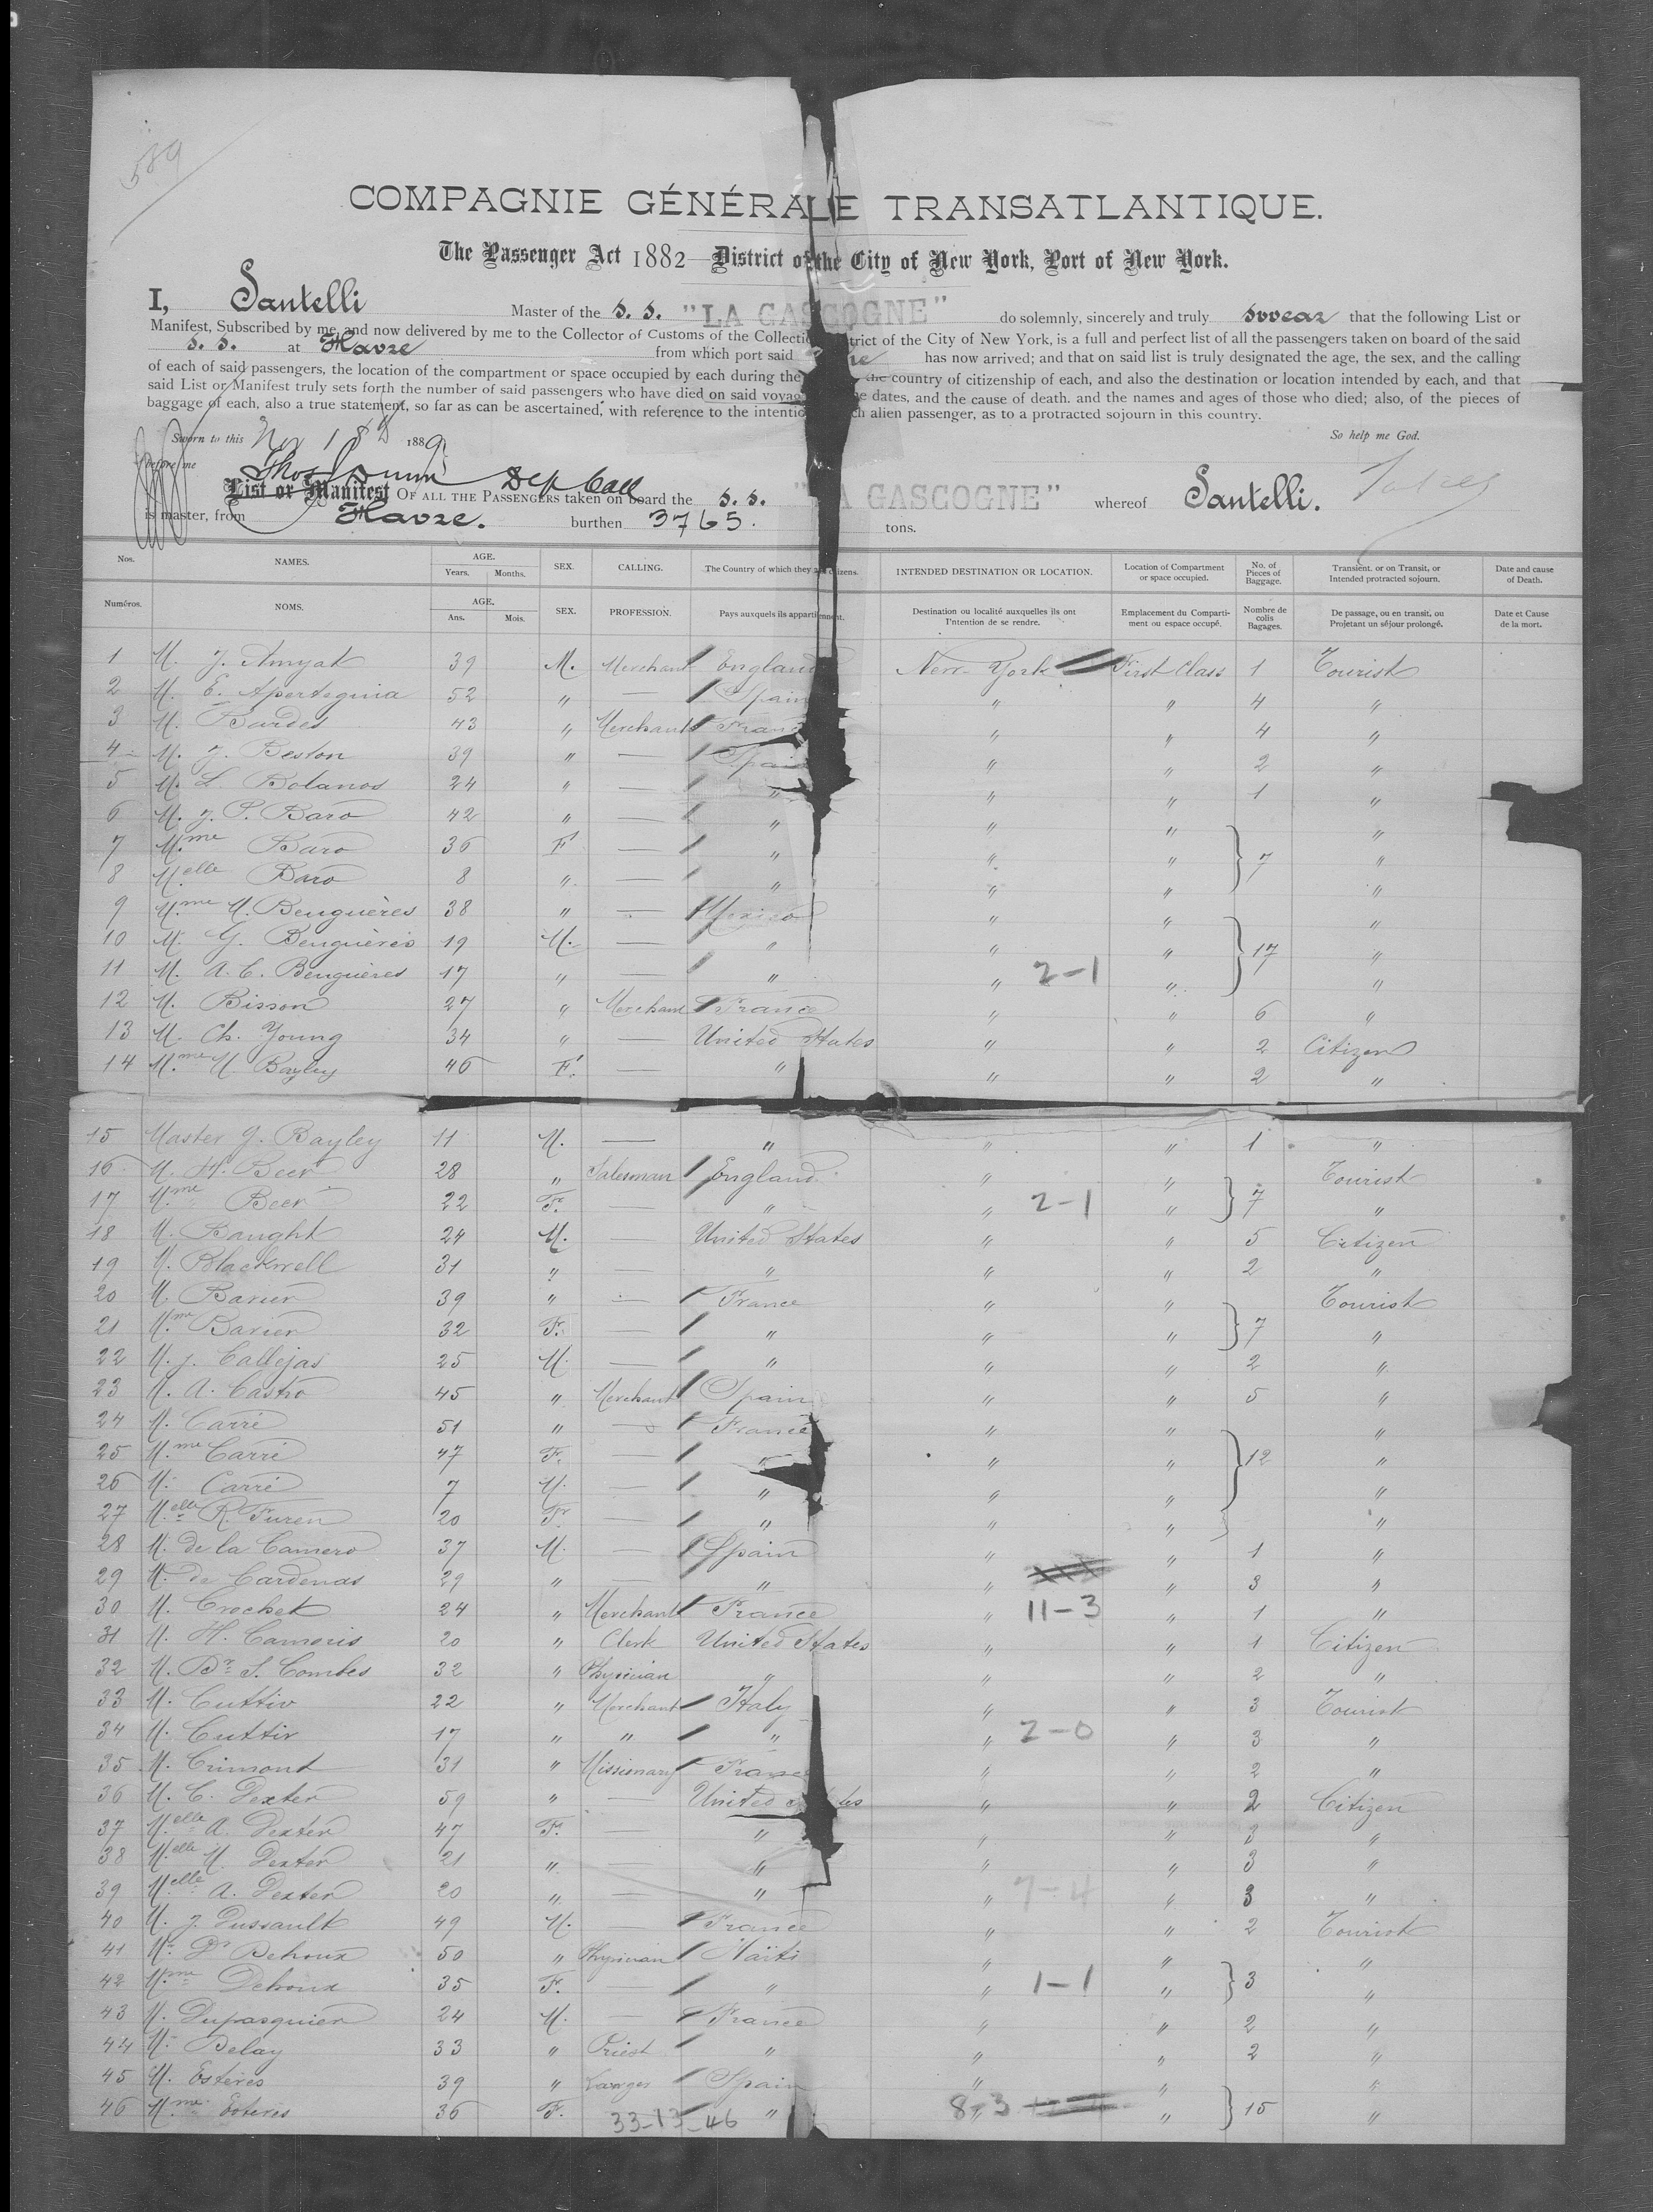 589
COMPAGNIE GÉNÉRALE TRANSATLANTIQUE.
The Passenger Act 1882—District of the City of New York, Port of New York.
I, Santelli Master of the s. s. "LA GASCOGNE" do solemnly, sincerely and truly swear that the following List or
Manifest, Subscribed by me, and now delivered by me to the Collector of Customs of the Collection District of the City of New York, is a full and perfect list of all the passengers taken on board of the said
s. s. at Havre from which port said has now arrived; and that on said list is truly designated the age, the sex, and the calling
of each of said passengers, the location of the compartment or space occupied by each during the the country of citizenship of each, and also the destination or location intended by each, and that
said List or Manifest truly sets forth the number of said passengers who have died on said voyage dates, and the cause of death. and the names and ages of those who died; also, of the pieces of
baggage of each, also a true statement, so far as can be ascertained, with reference to the intention alien passenger, as to a protracted sojourn in this country.
Sworn to this Nov 18th 1889 So help me God.
before me Thos Dunn Dep Coll
List or Manifest OF ALL THE PASSENGERS taken on board the s. s. "LA GASCOGNE" whereof Santelli.
is master, from Havre. burthen 3765. tons.
Nos. NAMES. AGE. Years. Months. SEX. CALLING. The Country of which they are citizens. INTENDED DESTINATION OR LOCATION. Location of Compartment or space occupied. No. of Pieces of Baggage. Transient. or on Transit, or Intended protracted sojourn. Date and cause of Death.
Numéros. NOMS. AGE. Ans. Mois. SEX. PROFESSION. Pays auxquels ils appartiennent. Destination ou localité auxquelles ils ont l'intention de se rendre. Emplacement du Compartiment ou espace occupé. Nombre de colis Bagages. De passage, ou en transit, ou Projetant un séjour prolongé. Date et Cause de la mort.
1 M. J. Amyat 39 M. Merchant England New-York First Class 1 Tourist
2 M. E. Aperteguia 52 " — Spain " " 4 "
3 M. Bardes 43 " Merchant France " " 4 "
4 M. J. Beston 39 " — Spain " " 2 "
5 M. L. Bolanos 24 " — " " " 1 "
6 M. J. P. Baro 42 " — " " " "
7 Mme Baro 36 F. — " " " 7 "
8 Melle Baro 8 " — " " " "
9 Mme M. Benguères 38 " — Mexico " " "
10 M. G. Benguères 19 M. — " " " 17 "
11 M. A. C. Benguères 17 " — " " 2-1 " "
12 M. Bisson 27 " Merchant France " " 6 "
13 M. Ch. Young 34 " — United States " " 2 Citizen
14 Mme M Bayley 46 F. — " " " 2 "
15 Master J. Bayley 11 M. — " " " 1 "
16 M. H. Beer 28 " Salesman England " " Tourist
17 Mme Beer 22 F. — " " 2-1 " 7 "
18 M. Baught 24 M. — United States " " 5 Citizen
19 M. Blackwell 31 " — " " " 2 "
20 M. Barier 39 " — France " " Tourist
21 Mme Barier 32 F. — " " " 7 "
22 M. J. Callejas 25 M. — " " " 2 "
23 M. A. Castro 45 " Merchant Spain " " 5 "
24 M. Carré 51 " — France " " "
25 Mme Carré 47 F. — " " " 12 "
26 M. Carré 7 M. — " " " "
27 Melle R. Furen 20 F. — " " " "
28 M. de la Camero 37 M. — Spain " " 1 "
29 M. de Cardenas 29 " — " " " 3 "
30 M. Crochet 24 " Merchant France " 11-3 " 1 "
31 M. H. Cameris 20 " Clerk United States " " 1 Citizen
32 M. Dr. S. Combes 32 " Physician " " " 2 "
33 M. Cuttiv 22 " Merchant Italy " " 3 Tourist
34 M. Cuttiv 17 " " " " 2-0 " 3 "
35 M. Crimont 31 " Missionary France " " 2 "
36 M. C. Dexter 59 " — United States " " 2 Citizen
37 Melle A. Dexter 47 F. — " " " 3 "
38 Melle M. Dexter 21 " — " " " 3 "
39 Melle A. Dexter 20 " — " " 7-4 " 3 "
40 M. J. Dussault 49 M. — France " " 2 Tourist
41 M. Dr Dehoux 50 " Physician Haïti " " "
42 Mme Dehoux 35 F. — " " 1-1 " 3 "
43 M. Dupasquier 24 M. — France " " 2 "
44 M. Delay 33 " Priest " " " 2 "
45 M. Esteves 39 " Spain " " "
46 Mme Esteves 36 F. 33-13-46 " 8-3 " 15 "